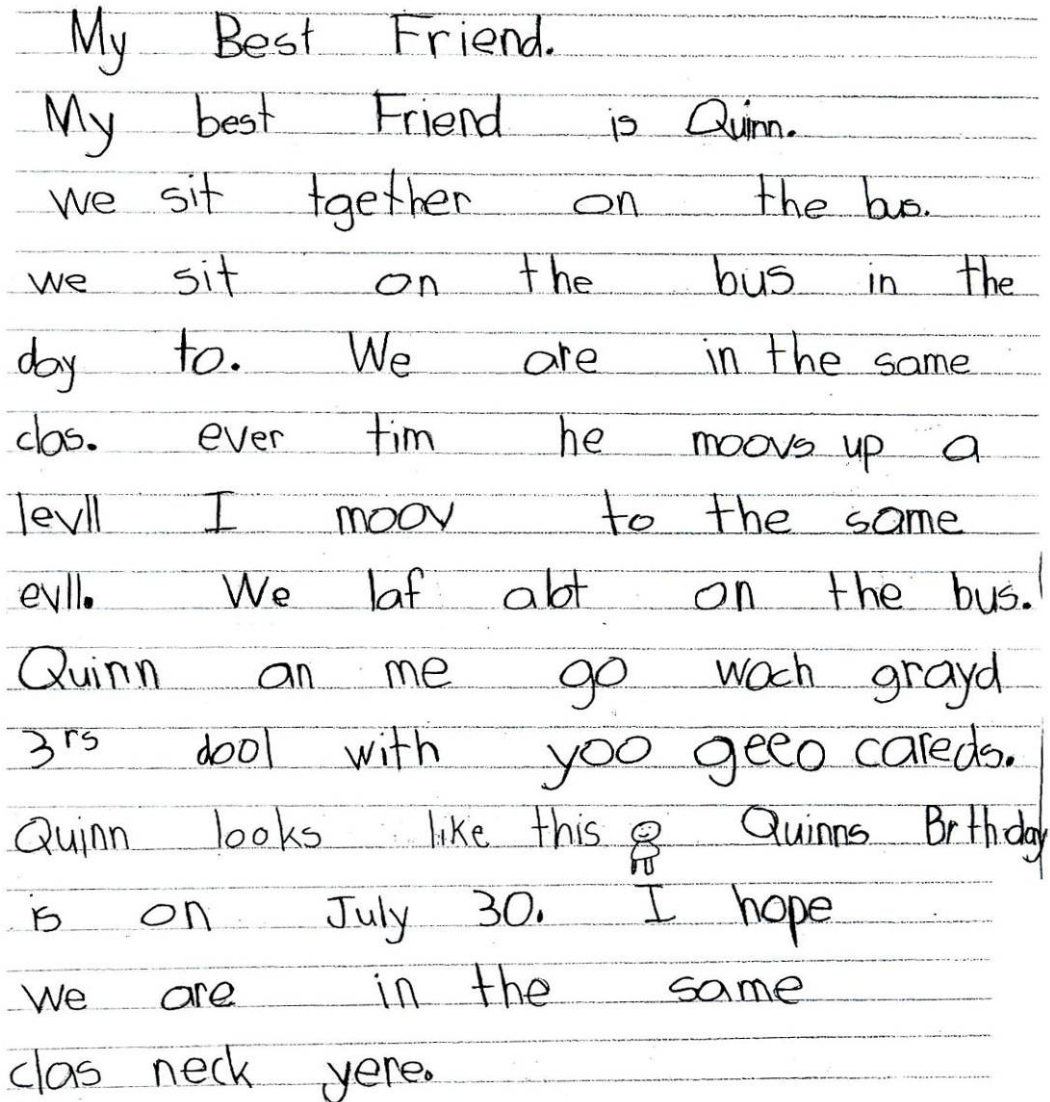 My Best Friend.
My best Friend is Quinn.
we sit tgether on the bus.
we sit on the bus in the
day to. We are in the same
clas. ever tim he moovs up a
levll I moov to the same
evll. We laf abt on the bus.
Quinn an me go wach grayd
3rs dool with yoo geeo careds.
Quinn looks like this Quinns Brthday
is on July 30. I hope
we are in the same
clas neck yere.